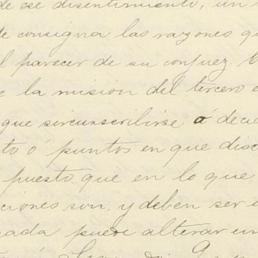 de ese disentimiento, un
te consigna las razones qu
l parecer de su conjuez
e la mision del tercero
que circunscribirse á deci
to ó puntos en que disc
puesto que en lo que
ciones son y deben ser
nada puede alterar un